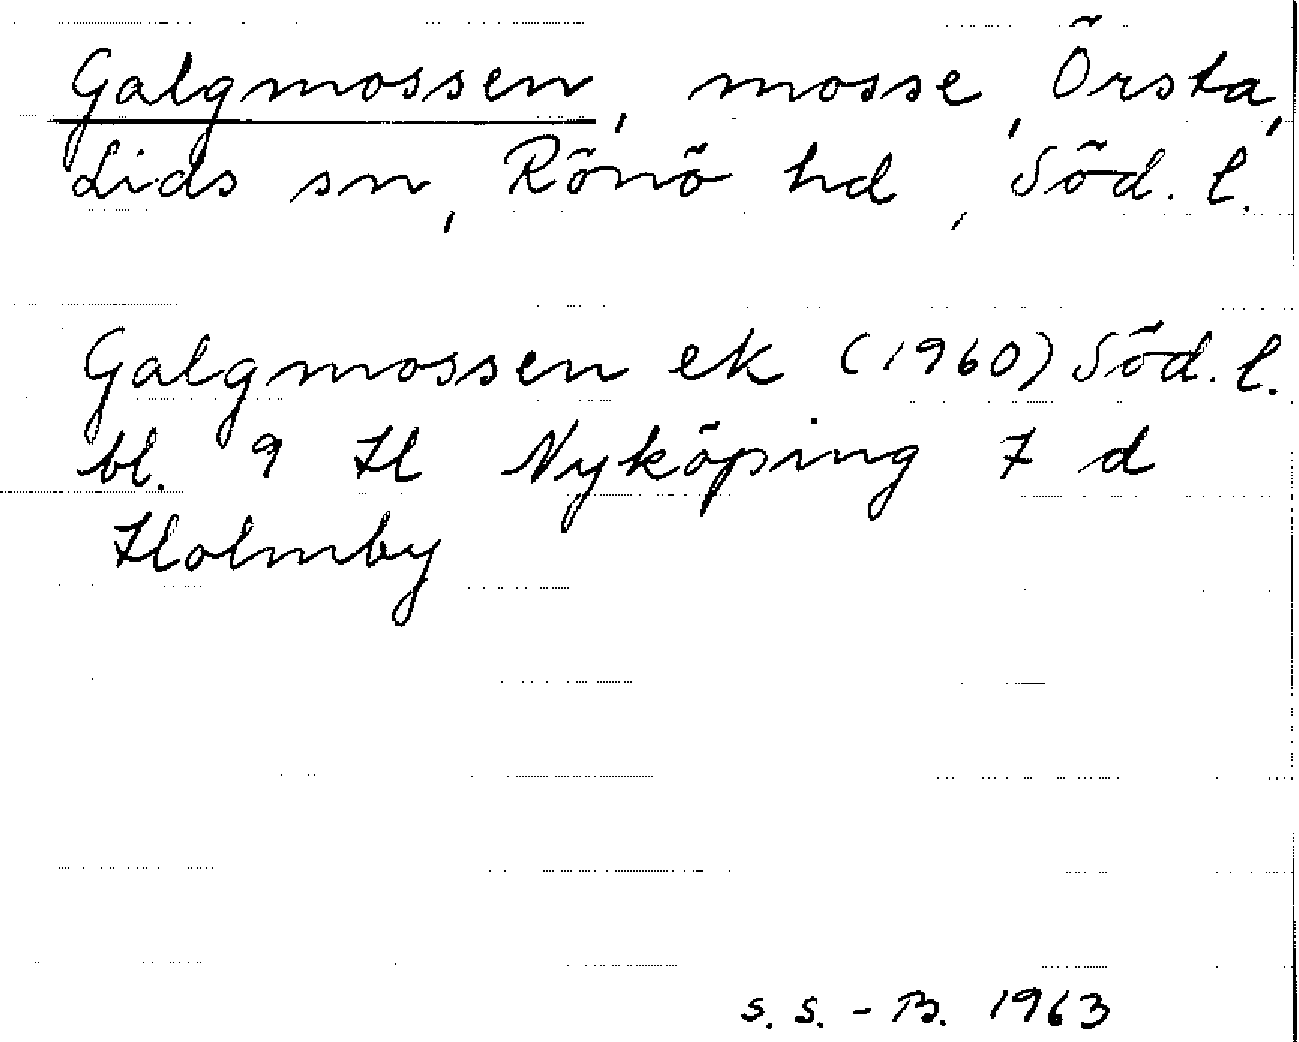 Galgmossen, mosse, Örsta,
Lids sn, Rönö hd, Söd. l.
Galgmossen ek (1960) Söd. l.
bl. 9 H Nyköping 7 d
Holmby
S. S. - B. 1963